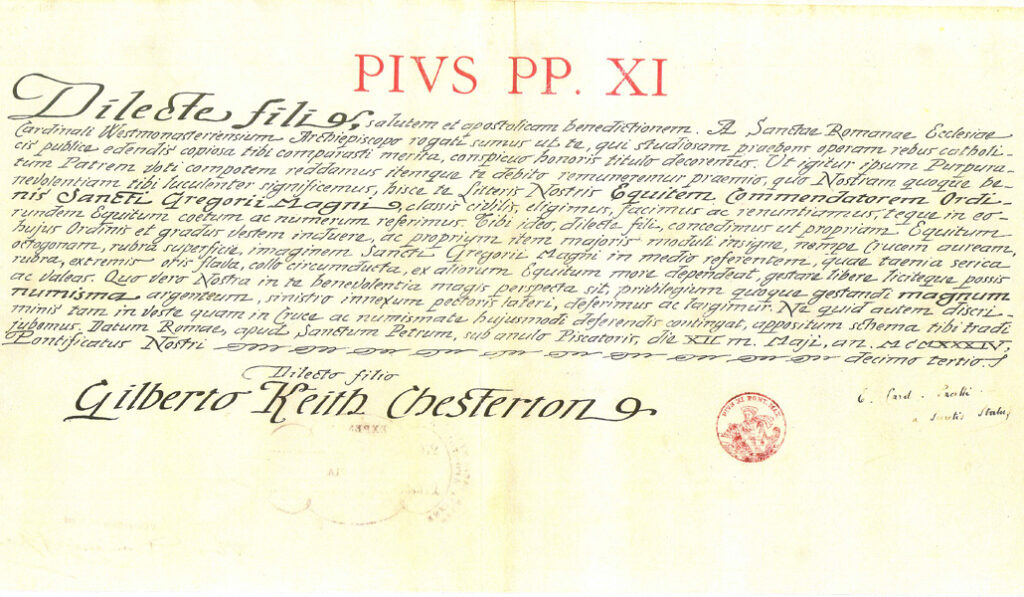 PIVS PP. XI
Dilecte fili, salutem et apostolicam benedictionem. A Sanctae Romanae Ecclesiae
Cardinali Westmonasteriensium Archiepiscopo rogati sumus ut te, qui studiosam praebens operam rebus catholi-
cis publice edendis copiosa tibi comparasti merita, conspicuo honoris titulo decoremus. Ut igitur ipsum Purpura-
tum Patrem voti compotem reddamus itemque te debito remuneremur praemio, quo Nostram quoque be-
nevolentiam tibi luculenter significemus, hisce te Litteris Nostris Equitem Commendatorem Ordi-
nis Sancti Gregorii Magni, classis civilis, eligimus, facimus ac renuntiamus, teque in eo-
rundem Equitum coetum ac numerum referimus. Tibi ideo, dilecte fili, concedimus ut propriam Equitum
hujus Ordinis et gradus vestem induere, ac proprium item majoris moduli insigne, nempe Crucem auream,
octogonam, rubra superficie, imaginem Sancti Gregorii Magni in medio referentem, quae taenia serica
rubra, extremis oris flava, collo circumducta, ex aliorum Equitum more dependeat, gestare libere liciteque possis
ac valeas. Quo vero Nostra in te benevolentia magis perspecta sit, privilegium quoque gestandi magnum
numisma argenteum, sinistro innexum pectoris lateri, deferimus ac largimur. Ne quid autem discri-
minis tam in veste quam in Cruce ac numismate hujusmodi deferendis contingat, appositum schema tibi tradi
jubemus. Datum Romae, apud Sanctum Petrum, sub anulo Piscatoris, die XII m. Maji, an. MCMXXXIV,
Pontificatus Nostri decimo tertio.
Dilecto filio
Gilberto Keith Chesterton
PIVS XI PONT MAX
Card. Pacelli
a